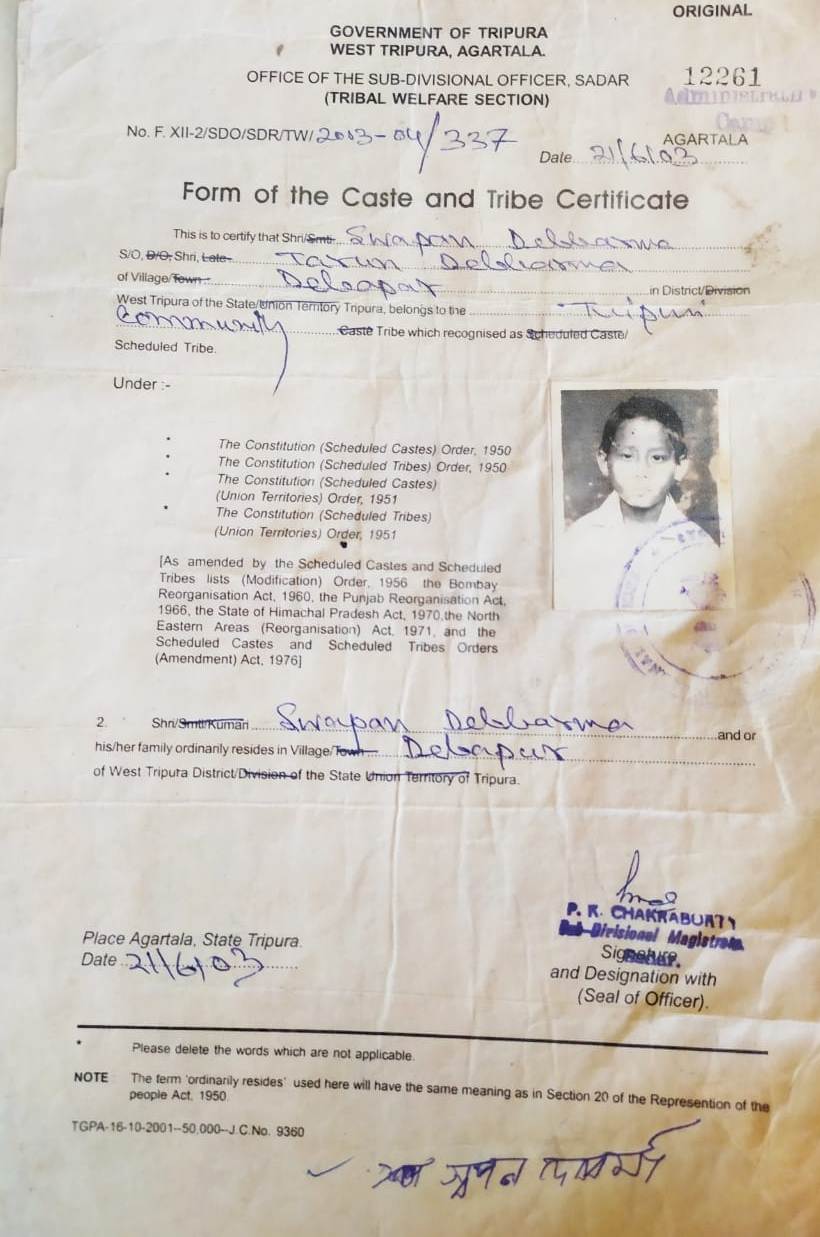 ORIGINAL
GOVERNMENT OF TRIPURA
WEST TRIPURA, AGARTALA.
OFFICE OF THE SUB-DIVISIONAL OFFICER, SADAR
12261
(TRIBAL WELFARE SECTION)
Administrative
Camp
No. F. XII-2/SDO/SDR/TW/2003-04/337
AGARTALA
Date 21/6/03
Form of the Caste and Tribe Certificate
This is to certify that Shri/Smti. Swapan Debbarma
S/O, D/O, Shri, Late Tarun Debbarma
of Village/Town Debapur in District/Division
West Tripura of the State/Union Territory Tripura, belongs to the Tripuri
Community Caste Tribe which recognised as Scheduled Caste/
Scheduled Tribe.
Under :-
* The Constitution (Scheduled Castes) Order, 1950
* The Constitution (Scheduled Tribes) Order, 1950
* The Constitution (Scheduled Castes)
(Union Territories) Order, 1951
* The Constitution (Scheduled Tribes)
(Union Territories) Order, 1951
[As amended by the Scheduled Castes and Scheduled
Tribes lists (Modification) Order, 1956 the Bombay
Reorganisation Act, 1960, the Punjab Reorganisation Act,
1966, the State of Himachal Pradesh Act, 1970,the North
Eastern Areas (Reorganisation) Act, 1971, and the
Scheduled Castes and Scheduled Tribes Orders
(Amendment) Act, 1976]
2. Shri/Smti/Kumari Swapan Debbarma and or
his/her family ordinarily resides in Village/Town Debapur
of West Tripura District/Division of the State Union Territory of Tripura.
P. R. CHAKRABURTY
Sub-Divisional Magistrate
Place Agartala, State Tripura.
Date 21/6/03
Signature
Sadar.
and Designation with
(Seal of Officer).
* Please delete the words which are not applicable.
NOTE The term 'ordinarily resides' used here will have the same meaning as in Section 20 of the Represention of the
people Act, 1950
TGPA-16-10-2001--50,000--J.C.No. 9360
স্বপন দেববর্মা